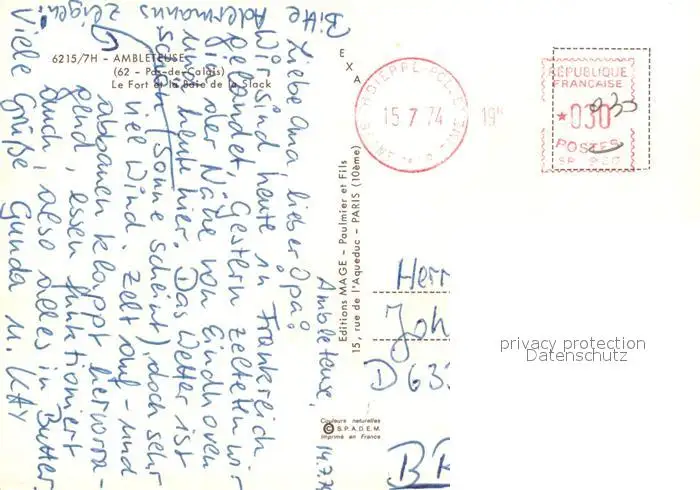 Bitte
Adermanns
zeigen!
Ambleteuse,
14.7.74
Liebe Oma, lieber Opa!
Wir sind heute in Frankreich
gelandet. Gestern zelteten wir
in der Nähe von Eindhoven
heute hier. Das Wetter ist
schön (Sonne scheint), doch sehr
viel Wind. Zelt auf- und
abbauen klappt hervorra-
gend, essen funktioniert
auch, also alles in Butter
Viele Grüße Gunda u. KAY
6215/7H - AMBLETEUSE
(62 - Pas-de-Calais)
Le Fort et la Baie de la Slack
EXA
Editions MAGE - Paulmier et Fils
15, rue de l'Aqueduc - PARIS (10ème)
Couleurs naturelles
© S.P.A.D.E.M.
Imprimé en France
15 7 74
19H
RÉPUBLIQUE
FRANÇAISE
★030
POSTES
Herr
Joh
D 633
privacy protection
Datenschutz